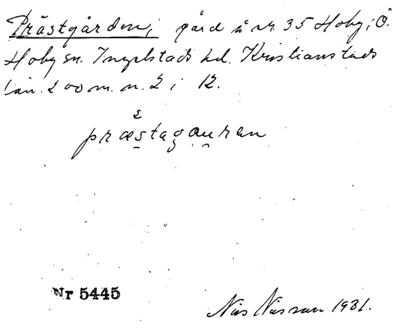 Prästgården, gård å nr. 35 Hoby, Ö.
Hoby sn. Ingelstads hd. Kristianstads
län. 200 m. n. 2 i 12.
præstagauran
Nr 5445
Nils Nilsson 1931.